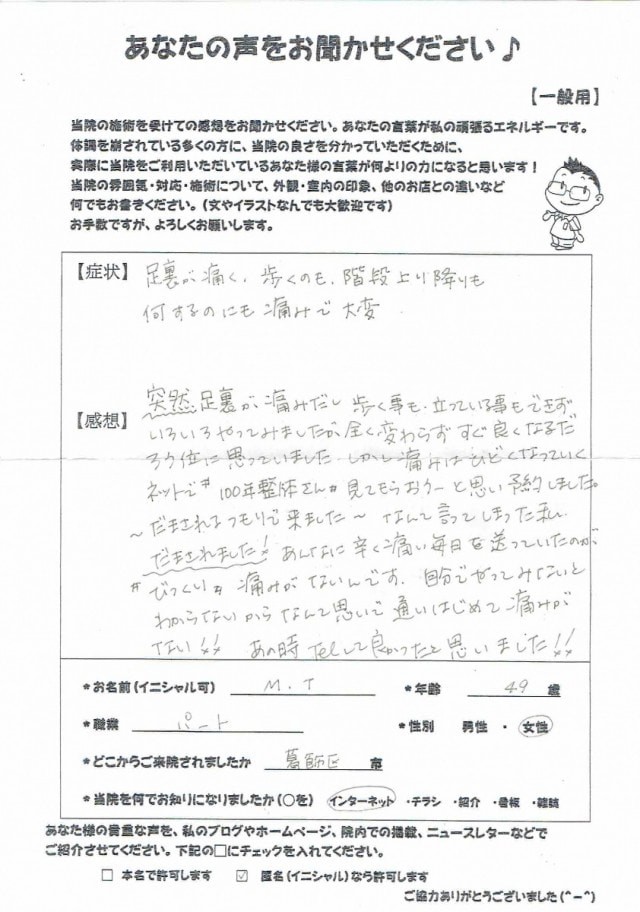 あなたの声をお聞かせください♪
【一般用】
当院の施術を受けての感想をお聞かせください。あなたの言葉が私の頑張るエネルギーです。
体調を崩されている多くの方に、当院の良さを分かっていただくために、
実際に当院をご利用いただいているあなた様の言葉が何よりの力になると思います！
当院の雰囲気・対応・施術について、外観・室内の印象、他のお店との違いなど
何でもお書きください。（文やイラストなんでも大歓迎です）
お手数ですが、よろしくお願いします。
【症状】 足裏が痛く、歩くのも、階段上り降りも
何するのにも痛みで大変
【感想】 突然足裏が痛みだし歩く事も、立っている事もできず
いろいろやってみましたが全く変わらずすぐ良くなるだ
ろう位に思っていました。しかし痛みはひどくなっていく
ネットで〃100年整体さんが見てもらおう〜と思い予約しました。
〜だまされるつもりで来ました〜 なんて言ってしまった私、
だまされました！あんなに辛く痛い毎日を送っていたのが
〃びっくり〃痛みがないんです。自分でやってみないと
わからないからなんて思いで通いはじめて痛みが
ない!! あの時Telして良かったと思いました!!
＊お名前（イニシャル可） M.T ＊年齢 49 歳
＊職業 パート ＊性別 男性 ・ 女性
＊どこからご来院されましたか 葛飾区 市
＊当院を何でお知りになりましたか（○を） インターネット ・チラシ ・紹介 ・看板 ・雑誌
あなた様の貴重な声を、私のブログやホームページ、院内での掲載、ニュースレターなどで
ご紹介させてください。下記の□にチェックを入れてください。
□ 本名で許可します ☑ 匿名（イニシャル）なら許可します
ご協力ありがとうございました（^－^）